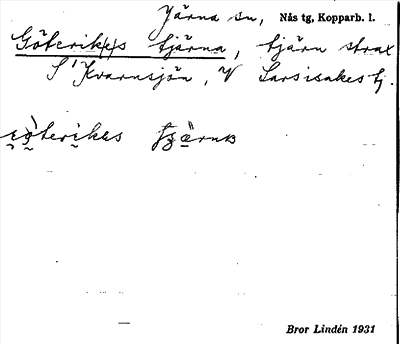 Järna sn, Nås tg, Kopparb. l.
Göterik(e)s tjärna, tjärn strax
S Kvarnsjön, V Larsisakestj.
Bror Lindén 1931